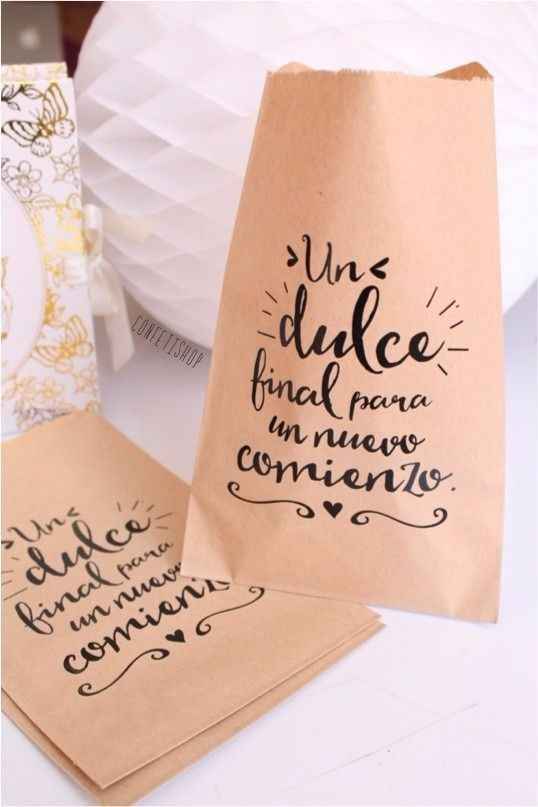 Un
dulce
final para
un nuevo
comienzo.
CONFETISHOP
Un
dulce
final para
un nuevo
comienzo.